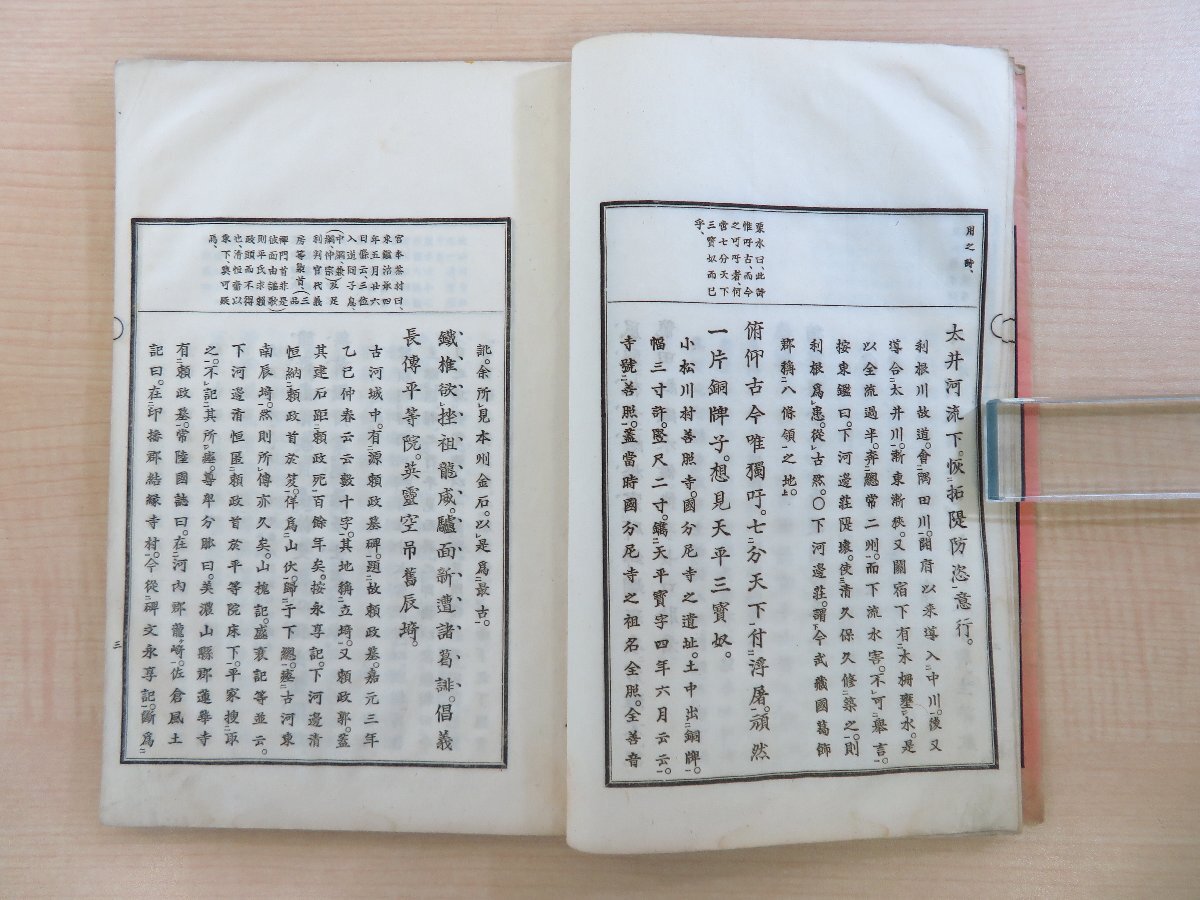 用之時、
栗水曰、此詩
惟吁古、而今
之可吁者、何
啻七分天下
三寶奴而已
乎、
太井河流下。恢拓隄防恣意行。
利根川故道。會隅田川。開府以來導入中川。後又
導合太井川。漸東漸狹。又關宿下有水柵壅水。是
以全流過半。奔總常二州。而下流水害。不可舉言。
按東鑑曰。下河邊莊隄壞。使清久保久修築之。則
利根爲患。從古然。〇下河邊莊。謂今武藏國葛飾
郡稱八條領之地。
俯仰古今唯獨吁。七分天下付浮屠。頑然
一片銅牌子。想見天平三寶奴。
小松川村善照寺。國分尼寺之遺址。土中出銅牌。
幅三寸許。竪尺二寸。鐫天平寶字四年六月云云。
寺號善照。蓋當時國分尼寺之祖名全照。全善音
訛。余所見本州金石。以是爲最古。
宮本茶村曰、
東鑑治承四
年五月廿六
日條云、三位
入道同子息、
(仲綱、兼綱、仲宗)及足
利判官代義
房等梟首、(三品
禪門首非是
彼面由謳歌)
則平氏求賴
政頭而不得
也、清恒嘗以
東下、奚可疑
焉、
鐵椎欲挫祖龍威。驢面新遭諸葛誹。倡義
長傳平等院。英靈空吊舊辰埼。
古河城中。有源賴政墓碑。題故賴政墓。嘉元三年
乙巳仲春云云數十字。其地稱立埼。又賴政郭。蓋
其建石距賴政死百餘年矣。按永享記。下河邊清
恒納賴政首於笈。佯爲山伏。歸于下總。瘞古河東
南辰埼。然則所傳亦久矣。山槐記。盛衰記等並云。
下河邊清恒匿賴政首於平等院床下。平家搜取
之。不記其所瘞。尊卑分脉曰。美濃山縣郡蓮華寺
有賴政墓。常陸國誌曰。在河內郡龍埼。佐倉風土
記曰。在印播郡結縁寺村。今從碑文永享記。斷爲
三